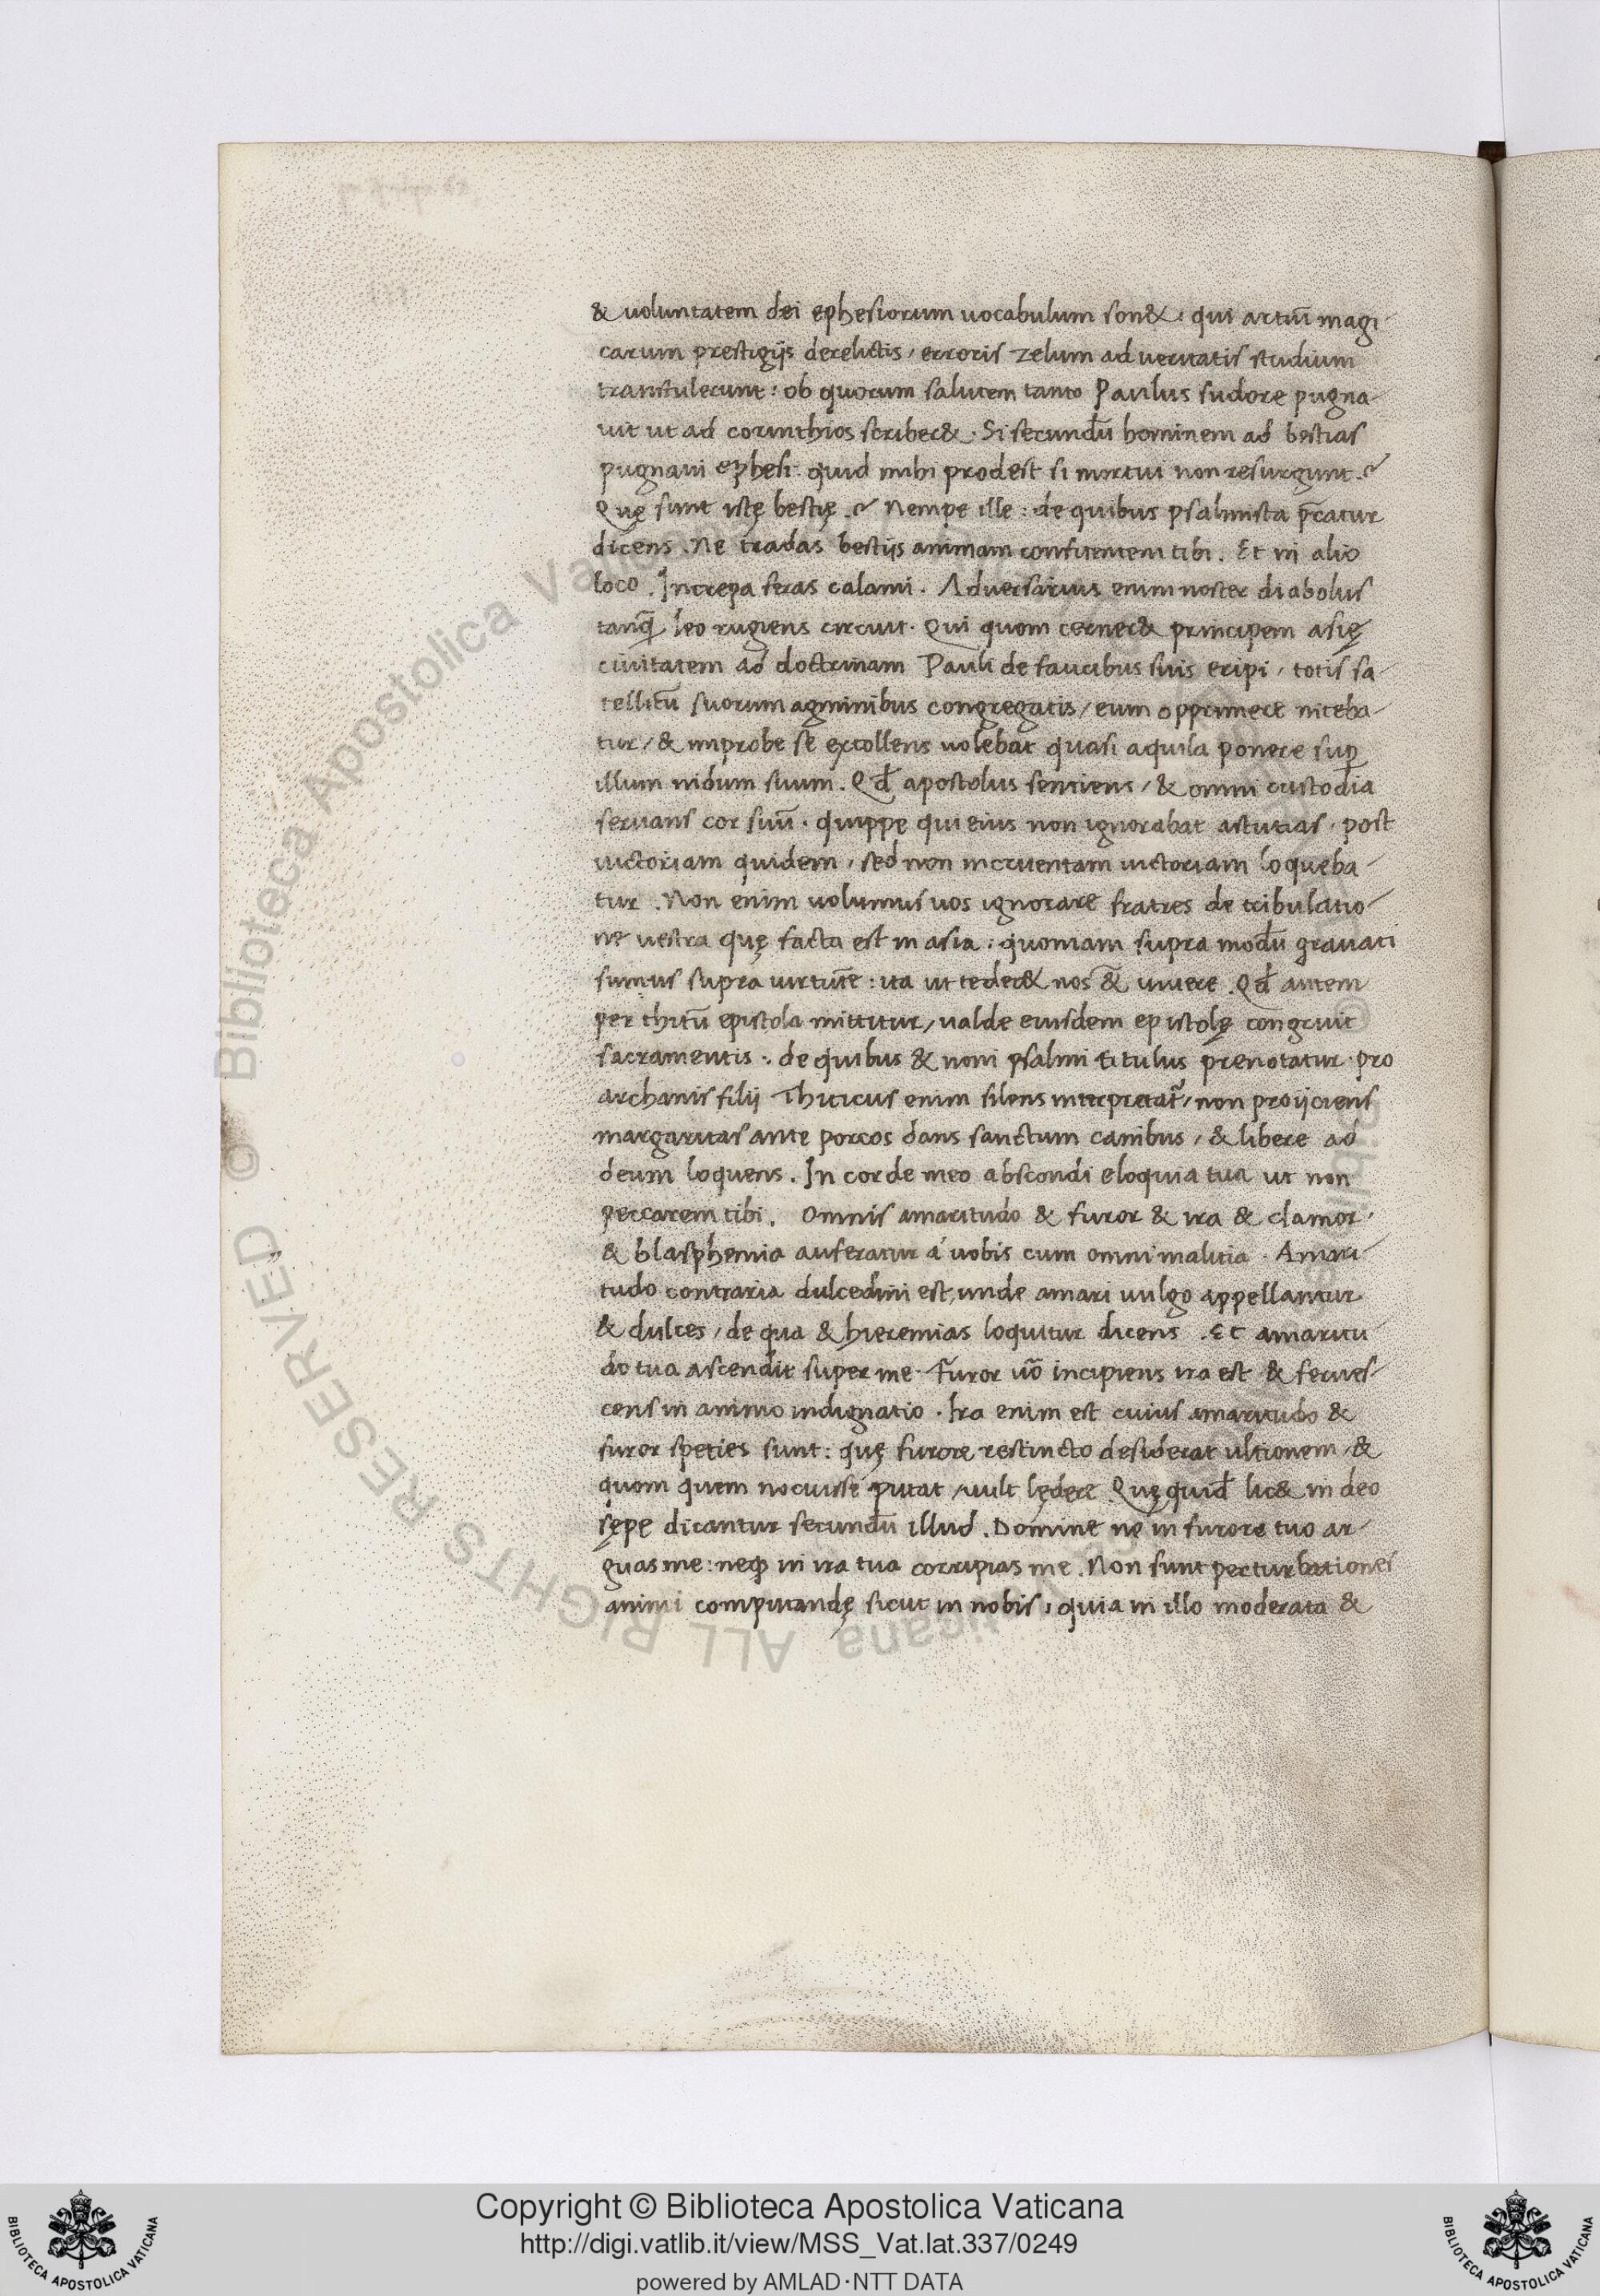 & uoluntatem dei ephesiorum uocabulum son&. qui artiū magi-
carum prestigijs derelictis, erroris zelum ad ueritatis studium
transtulerunt: ob quorum salutem tanto Paulus sudore pugna-
uit ut ad corinthios scriber&. Si secundū hominem ad bestias
pugnaui ephesi: quid mihi prodest si mortui non resurgunt.?
Quę sunt istę bestię.? Nempe ille: de quibus psalmista p̄catur
dicens. Ne tradas bestijs animam confitentem tibi. Et in alio
loco. Increpa feras calami. Aduersarius enim noster diabolus
tanq̄ leo rugiens circuit. Qui quom cerner& principem asię
ciuitatem ad doctrinam Pauli de faucibus suis eripi, totis sa-
tellitū suorum agminibus congregatis, eum opprimere niteba-
tur, & improbe se extollens uolebat quasi aquila ponere sup̱
illum nidum suum. Qđ apostolus sentiens, & omni custodia
seruans cor suū. quippe qui eius non ignorabat astutias. post
uictoriam quidem, sed non incruentam uictoriam loqueba-
tur. Non enim uolumus uos ignorare fratres de tribulatio-
ne uestra quę facta est in asia: quoniam supra modū grauati
sumus supra uirtutē: ita ut teder& nos & uiuere. Qđ autem
per thitū epistola mittitur, ualde eiusdem epistolę congruit
sacramentis: de quibus & noni psalmi titulus prenotatur. pro
archanis filij Thiticus enim silens interpretat̄, non proijciens
margaritas ante porcos dans sanctum canibus, & libere ad
deum loquens. In corde meo abscondi eloquia tua ut non
peccarem tibi. Omnis amaritudo & furor & ira & clamor,
& blasphemia auferatur á uobis cum omni malitia. Amari-
tudo contraria dulcedini est, unde amari uulgo appellantur
& dulces, de qua & hieremias loquitur dicens. Et amaritu
do tua ascendit super me. Furor uō incipiens ira est & ferues-
cens in animo indignatio. Ira enim est cuius amaritudo &
furor speties sunt: quę furore restincto desiderat ultionem &
quom quem nocuisse putat, uult lędere. Quę quid̄ lic& in deo
sępe dicantur secundū illud. Domine ne in furore tuo ar-
guas me: neq in ira tua corripias me. Non sunt perturbationes
animi computandę sicut in nobis, quia in illo moderata &
© Biblioteca Apostolica Vaticana ALL RIGHTS RESERVED
Copyright © Biblioteca Apostolica Vaticana
http://digi.vatlib.it/view/MSS_Vat.lat.337/0249
powered by AMLAD·NTT DATA
BIBLIOTECA APOSTOLICA VATICANA
BIBLIOTECA APOSTOLICA VATICANA